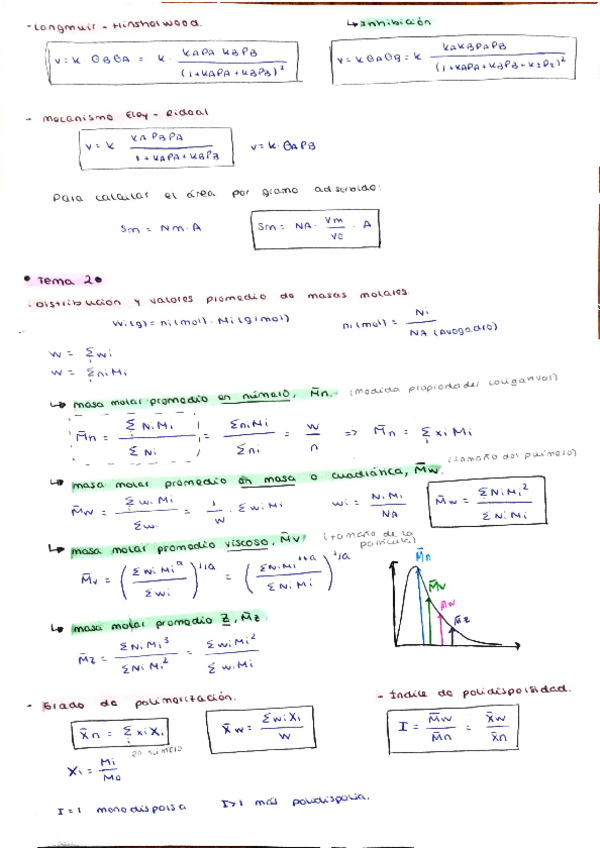 - Langmuir - Hinshelwood.
↳ Inhibición
v = k θBθA = k · KAPA KBPB / (1+KAPA+KBPB)²
v = k θAθB = k KAKBPAPB / (1+KAPA+KBPB+KIPI)²
- Mecanismo Eley - Rideal
v = k KAPBPA / 1+KAPA+KBPB
v = k · θAPB
Para calcular el área por gramo adsorbido:
Sm = Nm · A
Sm = NA · Vm/V0 · A
• Tema 2•
· Distribución y valores promedio de masas molares.
Wi(g) = ni(mol) · Mi(g/mol)
ni(mol) = Ni / NA (Avogadro)
W = Σ wi
W = Σ ni Mi
↳ masa molar promedio en número, M̄n. (medida propiedades coligativas)
M̄n = Σ Ni Mi / Σ Ni = Σ ni Mi / Σ ni = W / n ⇒ M̄n = Σ xi Mi
↳ masa molar promedio en masa o cuadrática, M̄w. (tamaño del polímero)
M̄w = Σ wi Mi / Σ w = 1/W · Σ wi Mi
wi = Ni Mi / NA
M̄w = Σ Ni Mi² / Σ Ni Mi
↳ masa molar promedio viscoso, M̄v. (tamaño de la partícula)
M̄v = (Σ Ni Mi^a / Σ wi)^1/a = (Σ Ni Mi^1+a / Σ Ni Mi)^1/a
M̄n
M̄v
M̄w
M̄z
↳ masa molar promedio Z, M̄z.
M̄z = Σ Ni Mi³ / Σ Ni Mi² = Σ wi Mi² / Σ wi Mi
- Grado de polimerización.
- Índice de polidispersidad.
X̄n = Σ xi Xi
en número
X̄w = Σ wi Xi / W
I = M̄w / M̄n = X̄w / X̄n
Xi = Mi / M0
I = 1 monodispersa
I > 1 más polidispersa.